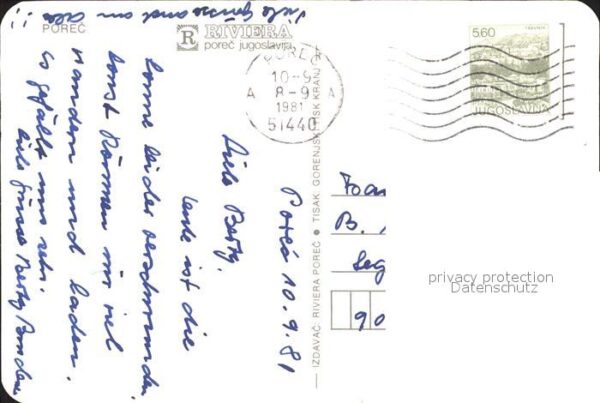 POREČ
RIVIERA
poreč jugoslavija
Viele Grüsse and an alle
!!
Poreč 10.9.81
Liebe Betty,
heute ist die
Sonne leider verschwunden.
Sonst können wir viel
wandern und baden.
Es gefällt uns sehr.
Viele Grüsse Betty
POREČ
10-9
A 8-9 A
1981
51440
TREBINJE
5,60
JUGOSLAVIJA
IZDAVAČ: RIVIERA POREČ ● TISAK: GORENJSKI TISK KRANJ
B.
90
privacy protection
Datenschutz